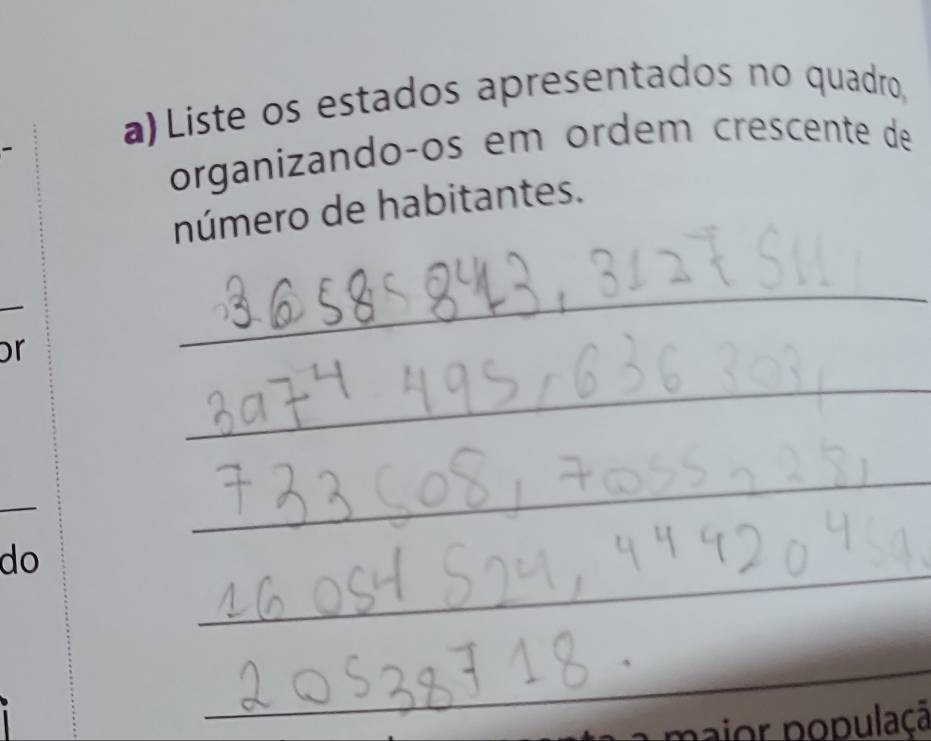 a) Liste os estados apresentados no quadro,
organizando-os em ordem crescente de
número de habitantes.
3658 843, 3127 511,
3974 495, 636 303,
733 508, 7055 228,
16 054 524, 44420459.
20538718.
or
do
maior populaçã